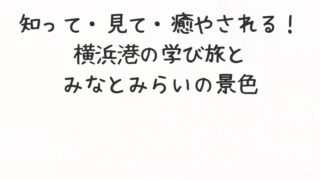 知って・見て・癒やされる！
横浜港の学び旅と
みなとみらいの景色